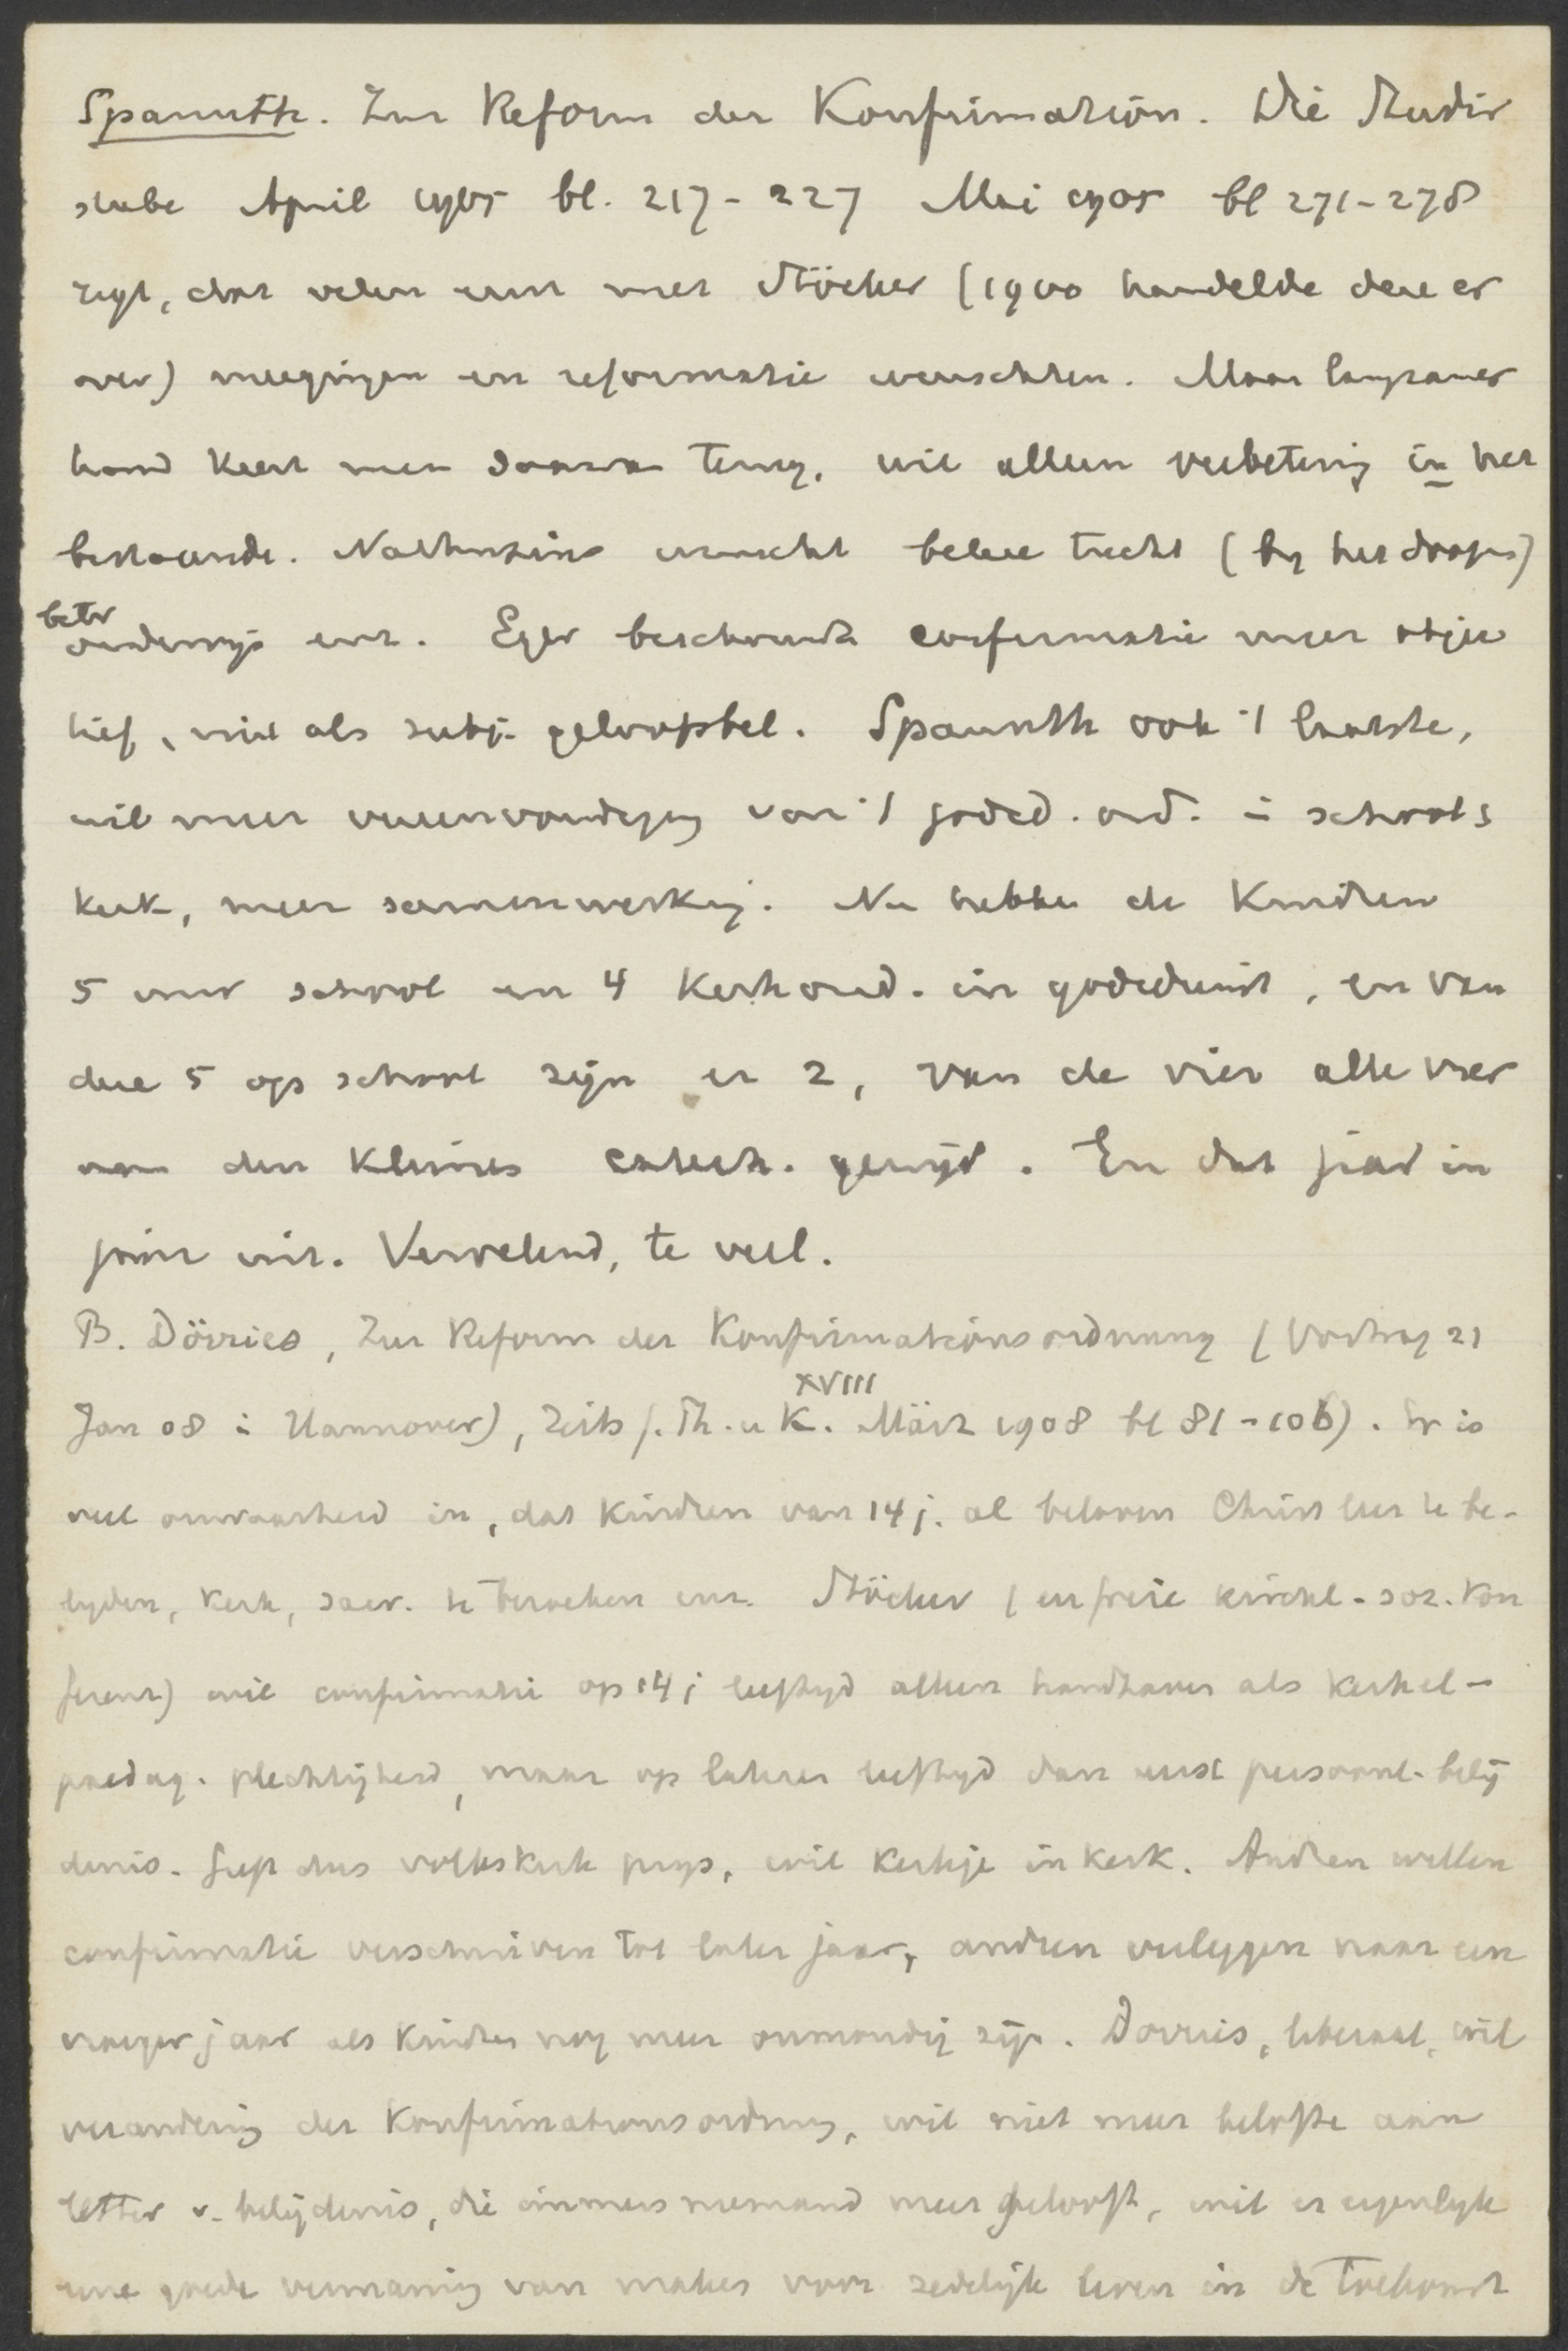 Spanuth. Zur Reform der Konfirmation. Die Studir
stube April 1905 bl. 217-227 Mai 1905 bl 271-278
zegt, dat velen eerst met Stöcker (1900 handelde deze er
over) meegingen en reformatie wenschten. Maar langzamer
hand keert men daarvan terug, wil alleen verbetering in het
bestaande. Nathusius wenscht betere tucht (by het doopen)
beter
onderwijs enz. Eger beschouwde confirmatie meer objec
tief, niet als subj. geloofsbel. Spanuth ook 't laatste,
wil meer vereenvoudiging van 't godsd. ond. in school &
kerk, meer samenwerking. Nu hebben de kinderen
5 uur school en 4 kerk ond. in godsdienst, en van
deze 5 op school zijn er 2, van de vier alle vier
aan den kleinen catech. gewijd. En dat jaar in
jaar uit. Vervelend, te veel.
B. Dörries, Zur Reform der Konfirmationsordnung (Vortrag 21
XVIII
Jan 08 in Hannover), Zeits f. Th. u K. März 1908 bl 81-106). Er is
veel onwaarheid in, dat kinderen van 14 j. al beloven Christ leer te be-
lyden, kerk, sacr. te bezoeken enz. Stöcker (en freie kirchl.-soz. Kon
ferenz) wil confirmatie op 14 j leeftyd alleen handhaven als kerkel-
paedag. plechtigheid, maar op lateren leeftyd dan eerst persoonl. belij
denis. Geeft dus volkskerk prys, wil kerkje in kerk. Anderen willen
confirmatie verschuiven tot later jaar, anderen verleggen naar een
vroeger jaar als kinderen nog meer onmondig zijn. Dörries, liberaal, wil
verandering der Konfirmationsordnung, wil niet meer belofte aan
letter v. belijdenis, die immers niemand meer gelooft, wil er eigenlyk
eene goede vermaning van maken voor zedelijk leven in de toekomst